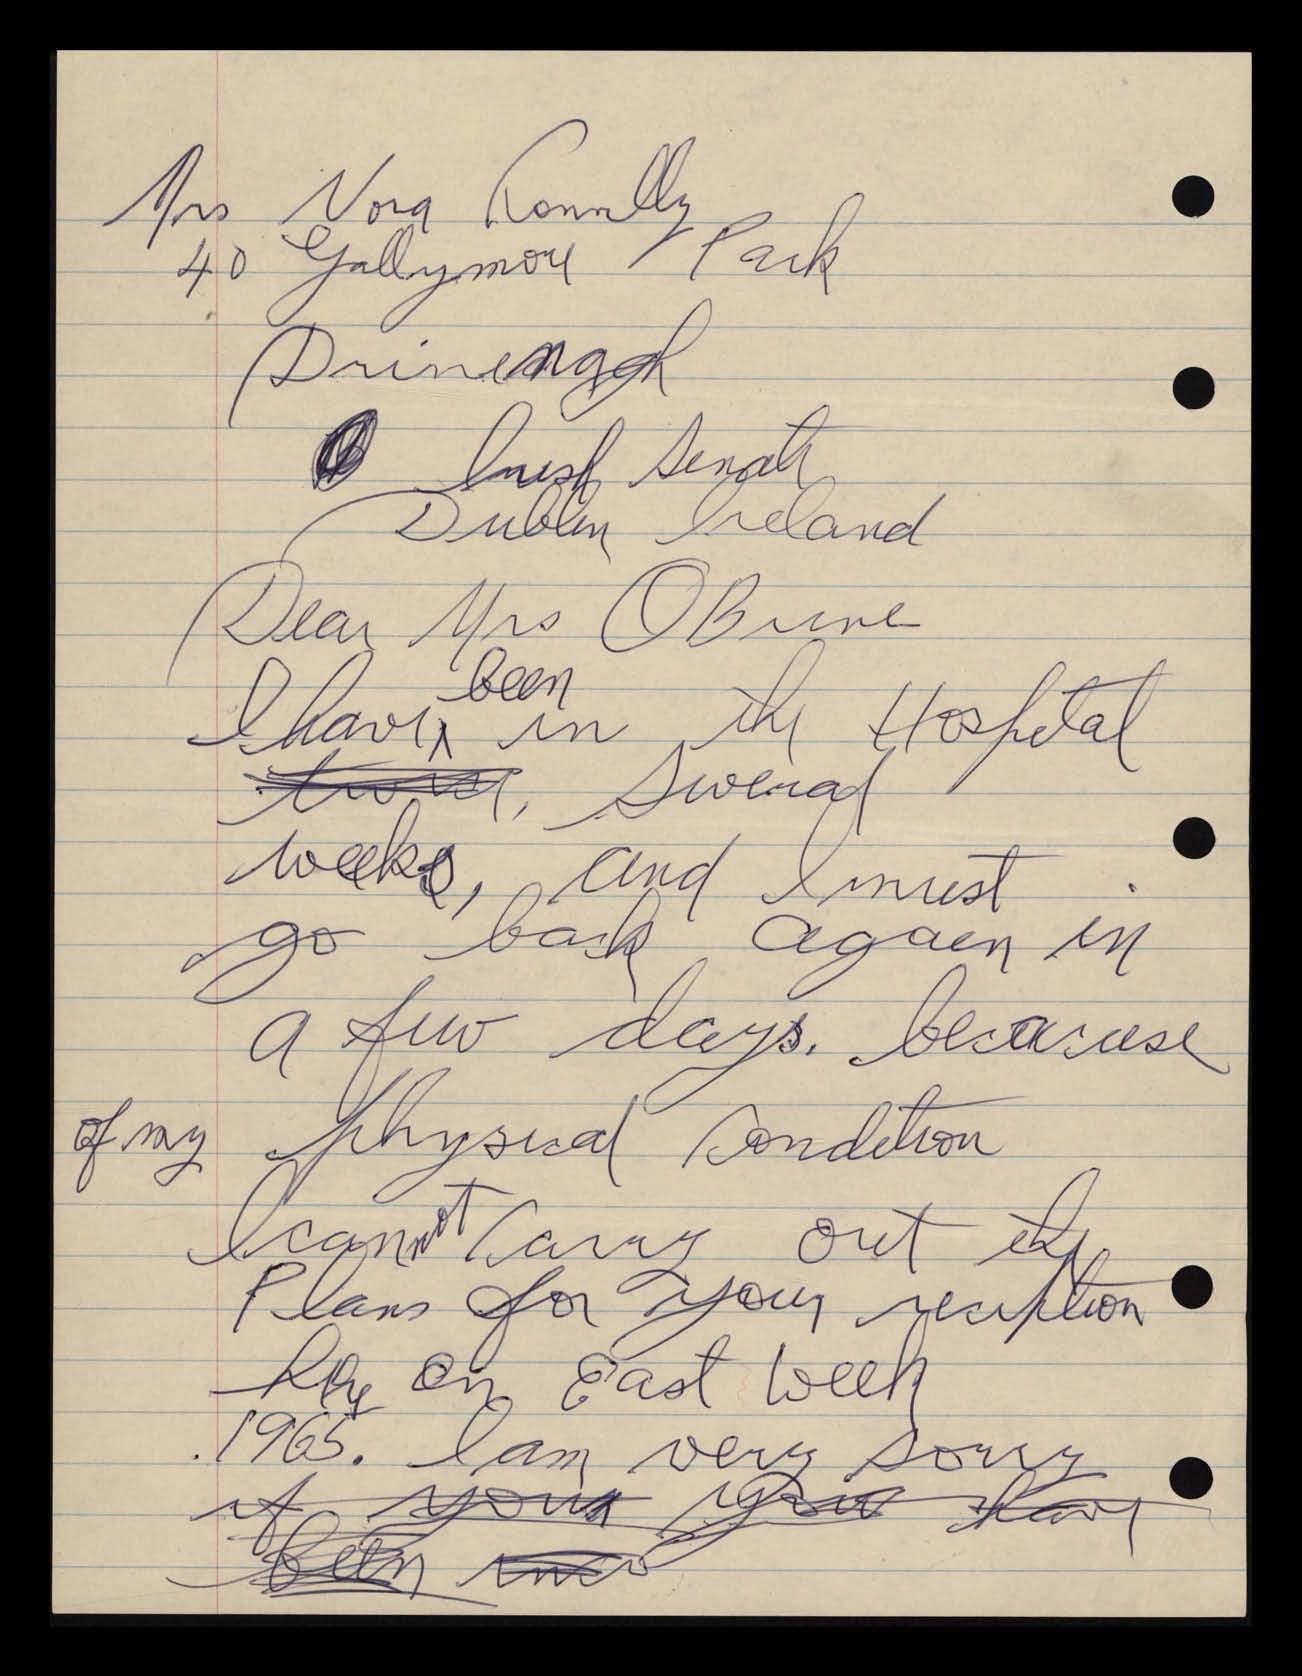 Mrs Nora Connolly
40 Gallymore Park
Drinenagh
Irish Senate
Dublin Ireland
Dear Mrs OBrine
I have been in the Hospetal
Sweral
weeks, and I must
go back again in
a few days. because
of my physical Condition
I cannot Carry out the
Plans for your reception
here on East Week
1965. I am very sorry
if your you have
been